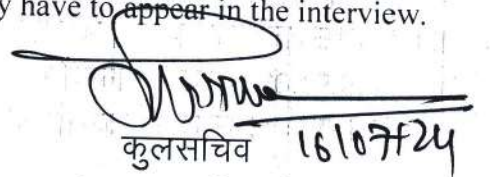 y have to appear in the interview.
कुलसचिव 16/07/24